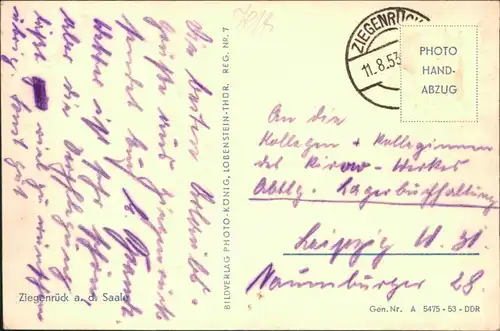 Die besten Urlaubs-
grüße aus Ziegenrück
sendet Euch
Wetter ist sehr schön,
aber die Verpflegung
läßt viel zu wünschen
übrig. Sonst gut
ZIEGENRÜCK
11.8.53
PHOTO
HAND-
ABZUG
An die
Kollegen + Kolleginnen
des Kirow-Werkes
Abtlg. Lagerbuchhaltung
Leipzig W. 31.
Naumburger 28.
BILDVERLAG PHOTO-KÖNIG, LOBENSTEIN-THÜR. REG. NR. 7
Ziegenrück a. d. Saale
Gen. Nr. A 5475 - 53 - DDR